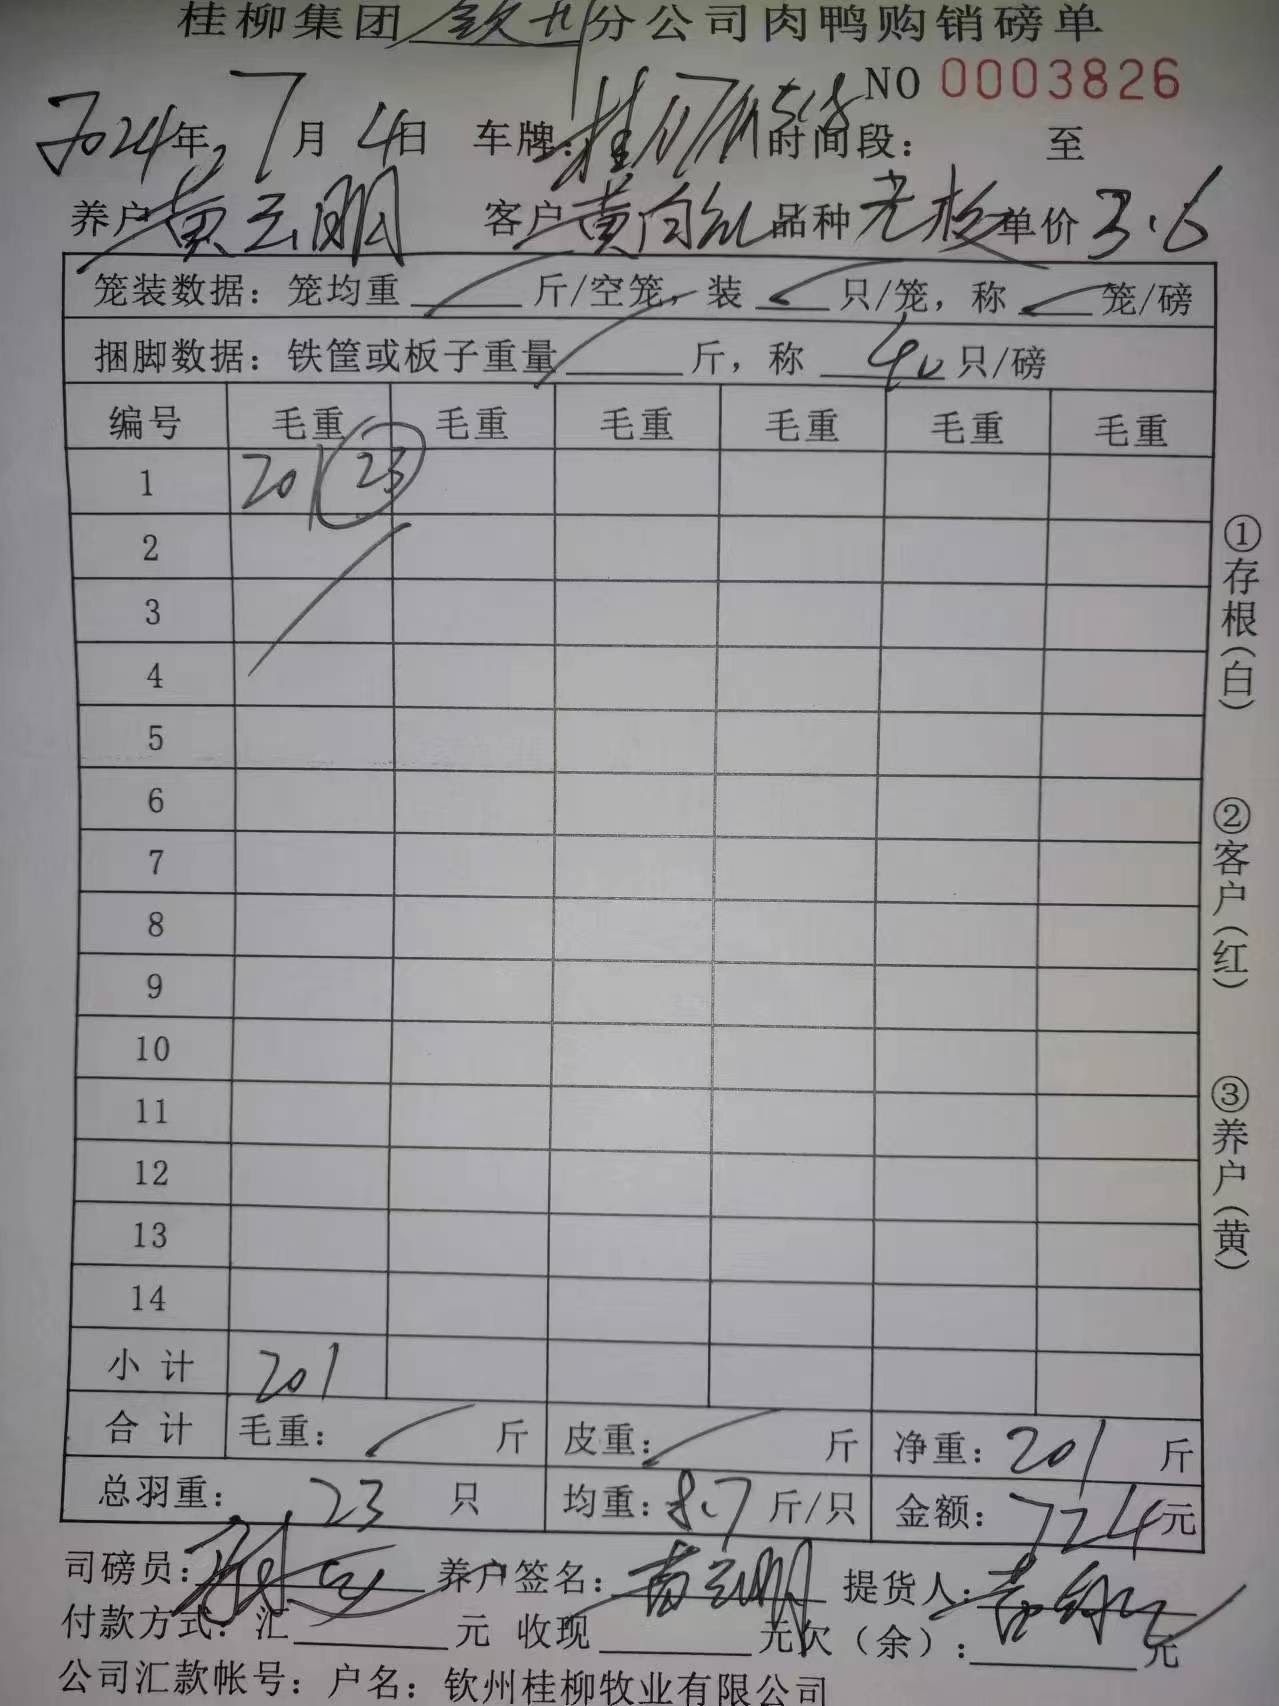 桂柳集团钦州分公司肉鸭购销磅单
NO 0003826
2024年7月4日 车牌：桂 时间段： 至
养户 黄云朋 客户 黄 品种 单价 3.6
笼装数据：笼均重 斤/空笼，装 只/笼，称 笼/磅
捆脚数据：铁筐或板子重量 斤，称 40 只/磅
编号 毛重 毛重 毛重 毛重 毛重 毛重
1 201 23
2
3
4
5
6
7
8
9
10
11
12
13
14
小计 201
合计 毛重： 斤 皮重： 斤 净重：201 斤
总羽重： 23 只 均重：8.7 斤/只 金额：724元
司磅员： 养户签名：黄云朋 提货人：
付款方式：汇 元 收现 元欠（余）： 元
公司汇款帐号：户名：钦州桂柳牧业有限公司
①存根(白) ②客户(红) ③养户(黄)